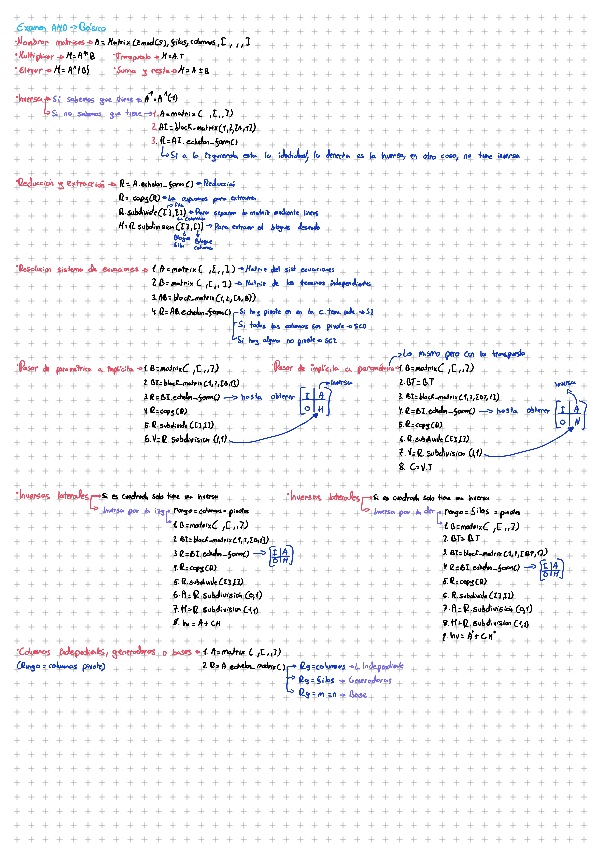 Examen AMD → Básico
·Nombrar matrices → A = Matrix(Zmod(5), filas, columnas, [ , , , ]
·Multiplicar → M = A*B ·Transpuesta → M = A.T
·Elevar → M = A^(8) ·Suma y resta → M = A ± B
·Inversa → Si sabemos que tiene → A^(-1)
Si no sabemos que tiene → 1. A = matrix( , [ , , ])
2. AI = block_matrix(1,2,[A,1])
3. R = AI.echelon_form()
Si a la izquierda está la identidad, la derecha es la inversa, en otro caso, no tiene inversa
·Reducción y extracción → R = A.echelon_form() → Reducción
R = copy(R) → La copiamos para extraerla
R.subdivide([ ],[ ]) → Para separar la matriz mediante líneas
filas
columnas
M = R.subdivision([ ],[ ]) → Para extraer el bloque deseado
Bloque fila
Bloque columna
·Resolución sistema de ecuaciones → 1. A = matrix( , [ , , ]) → Matriz del sist ecuaciones
2. B = matrix( , [ , , ]) → Matriz de los términos independientes
3. AB = block_matrix(1,2,[A,B])
4. R = AB.echelon_form() Si hay pivote en la c. term. indp. → SI
Si todas las columnas son pivote → SCD
Si hay alguna no pivote → SCI
Lo mismo pero con la transpuesta
·Pasar de paramétrica a implícita → 1. B = matrix( , [ , , ])
2. BI = block_matrix(1,2,[B,1])
3. R = BI.echelon_form() → hasta obtener [ I A / O H ]
inversa
4. R = copy(R)
5. R.subdivide([ ],[ ])
6. V = R.subdivision(1,1)
·Pasar de implícita a paramétrica → 1. B = matrix( , [ , , ])
2. BT = B.T
3. BI = block_matrix(1,2,[BT,1])
4. R = BI.echelon_form() → hasta obtener [ I A / O N ]
inversa
5. R = copy(R)
6. R.subdivide([ ],[ ])
7. V = R.subdivision(1,1)
8. C = V.T
·Inversas laterales → Si es cuadrada solo tiene una inversa
Inversa por la izq → rango = columnas = pivotes
1. B = matrix( , [ , , ])
2. BI = block_matrix(1,2,[B,1])
3. R = BI.echelon_form() → [ I A / O H ]
4. R = copy(R)
5. R.subdivide([ ],[ ])
6. A = R.subdivision(0,1)
7. H = R.subdivision(1,1)
8. Inv = A + CH
·Inversas laterales → Si es cuadrada solo tiene una inversa
Inversa por la der → rango = filas = pivotes
1. B = matrix( , [ , , ])
2. BT = B.T
3. BI = block_matrix(1,2,[BT,1])
4. R = BI.echelon_form() → [ I A / O H ]
5. R = copy(R)
6. R.subdivide([ ],[ ])
7. A = R.subdivision(0,1)
8. H = R.subdivision(1,1)
9. Inv =
·Columnas independients, generadoras o bases → 1. A = matrix( , [ , , ])
(Rango = columnas pivote) 2. R = A.echelon_matrix() → Rg = columnas → L. Independiente
Rg = filas → Generadoras
Rg = m = n → Base